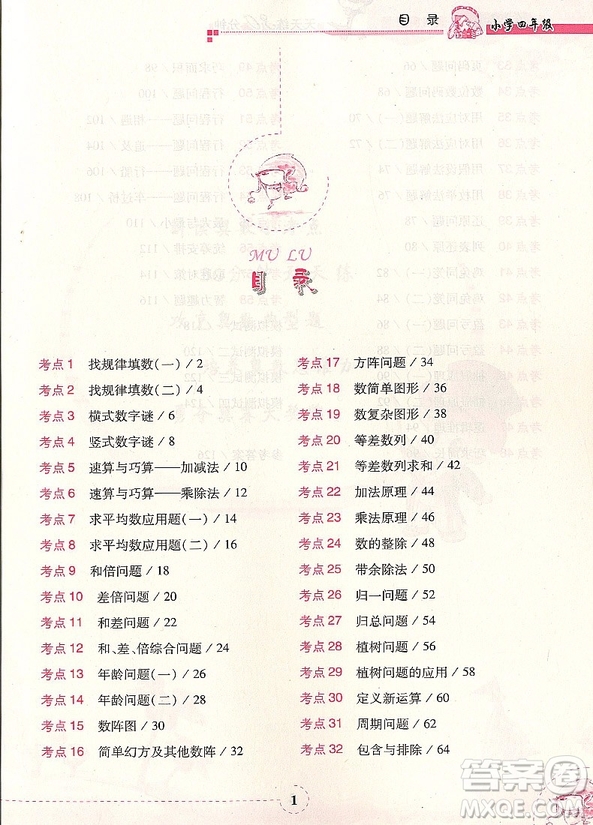 目 录
小学四年级
MU LU
目 录
考点 1 找规律填数(一) / 2
考点 2 找规律填数(二) / 4
考点 3 横式数字谜 / 6
考点 4 竖式数字谜 / 8
考点 5 速算与巧算——加减法 / 10
考点 6 速算与巧算——乘除法 / 12
考点 7 求平均数应用题(一) / 14
考点 8 求平均数应用题(二) / 16
考点 9 和倍问题 / 18
考点 10 差倍问题 / 20
考点 11 和差问题 / 22
考点 12 和、差、倍综合问题 / 24
考点 13 年龄问题(一) / 26
考点 14 年龄问题(二) / 28
考点 15 数阵图 / 30
考点 16 简单幻方及其他数阵 / 32
考点 17 方阵问题 / 34
考点 18 数简单图形 / 36
考点 19 数复杂图形 / 38
考点 20 等差数列 / 40
考点 21 等差数列求和 / 42
考点 22 加法原理 / 44
考点 23 乘法原理 / 46
考点 24 数的整除 / 48
考点 25 带余除法 / 50
考点 26 归一问题 / 52
考点 27 归总问题 / 54
考点 28 植树问题 / 56
考点 29 植树问题的应用 / 58
考点 30 定义新运算 / 60
考点 31 周期问题 / 62
考点 32 包含与排除 / 64
1
答案圈
MXQE.COM